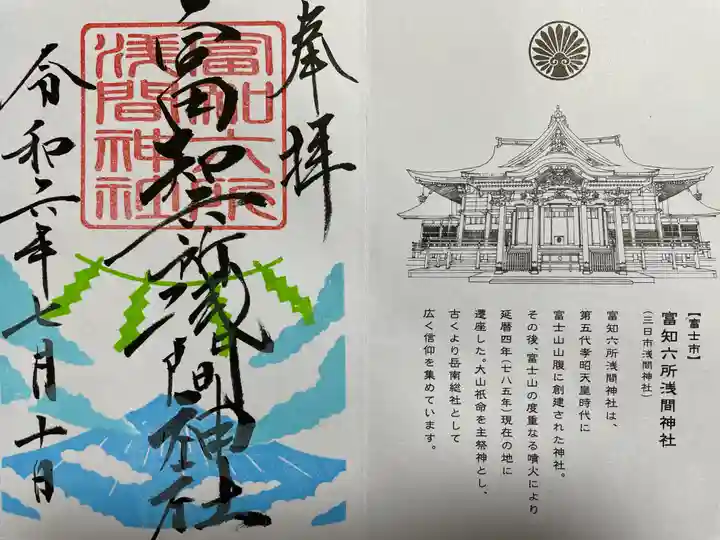 奉拝
富知六所浅間神社
令和六年七月十日
富知六所
浅間神社
【富士市】
富知六所浅間神社
(三日市浅間神社)
富知六所浅間神社は、
第五代孝昭天皇時代に
富士山山腹に創建された神社。
その後、富士山の度重なる噴火により
延暦四年(七八五年)現在の地に
遷座した。大山祇命を主祭神とし、
古くより岳南総社として
広く信仰を集めています。